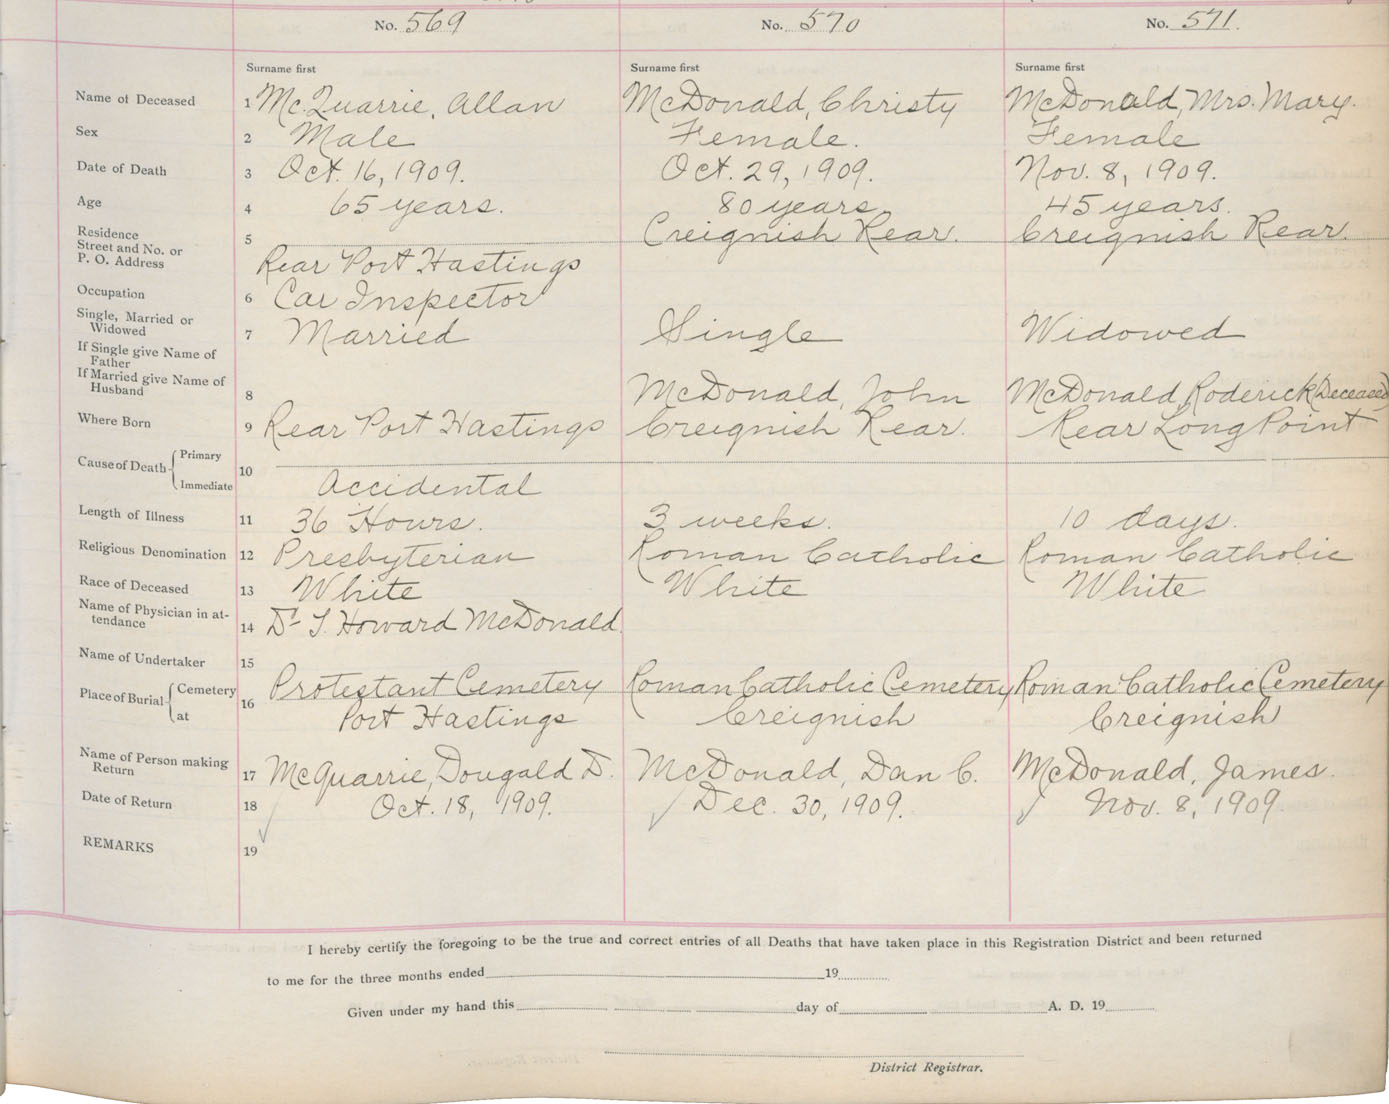 No. 569 No. 570 No. 571.
Surname first Surname first Surname first
Name of Deceased 1 McQuarrie, Allan McDonald, Christy McDonald, Mrs. Mary.
Sex 2 Male Female. Female
Date of Death 3 Oct. 16, 1909. Oct. 29, 1909. Nov. 8, 1909.
Age 4 65 years. 80 years 45 years.
Residence
Street and No. or 5 Creignish Rear. Creignish Rear.
P. O. Address Rear Port Hastings
Occupation 6 Car Inspector
Single, Married or
Widowed 7 Married Single Widowed
If Single give Name of
Father
If Married give Name of
Husband 8 McDonald, John McDonald, Roderick (Deceased)
Where Born 9 Rear Port Hastings Creignish Rear. Rear Long Point
Cause of Death Primary
10
Immediate Accidental
Length of Illness 11 36 Hours. 3 weeks. 10 days.
Religious Denomination 12 Presbyterian Roman Catholic Roman Catholic
Race of Deceased 13 White White White
Name of Physician in at-
tendance 14 Dr Howard McDonald.
Name of Undertaker 15
Place of Burial Cemetery 16 Protestant Cemetery Roman Catholic Cemetery Roman Catholic Cemetery
at Port Hastings Creignish Creignish
Name of Person making
Return 17 McQuarrie, Dougald D. McDonald, Dan C. McDonald, James.
Date of Return 18 Oct. 18, 1909. Dec. 30, 1909. Nov. 8, 1909
REMARKS 19
I hereby certify the foregoing to be the true and correct entries of all Deaths that have taken place in this Registration District and been returned
to me for the three months ended 19
Given under my hand this day of A. D. 19
District Registrar.